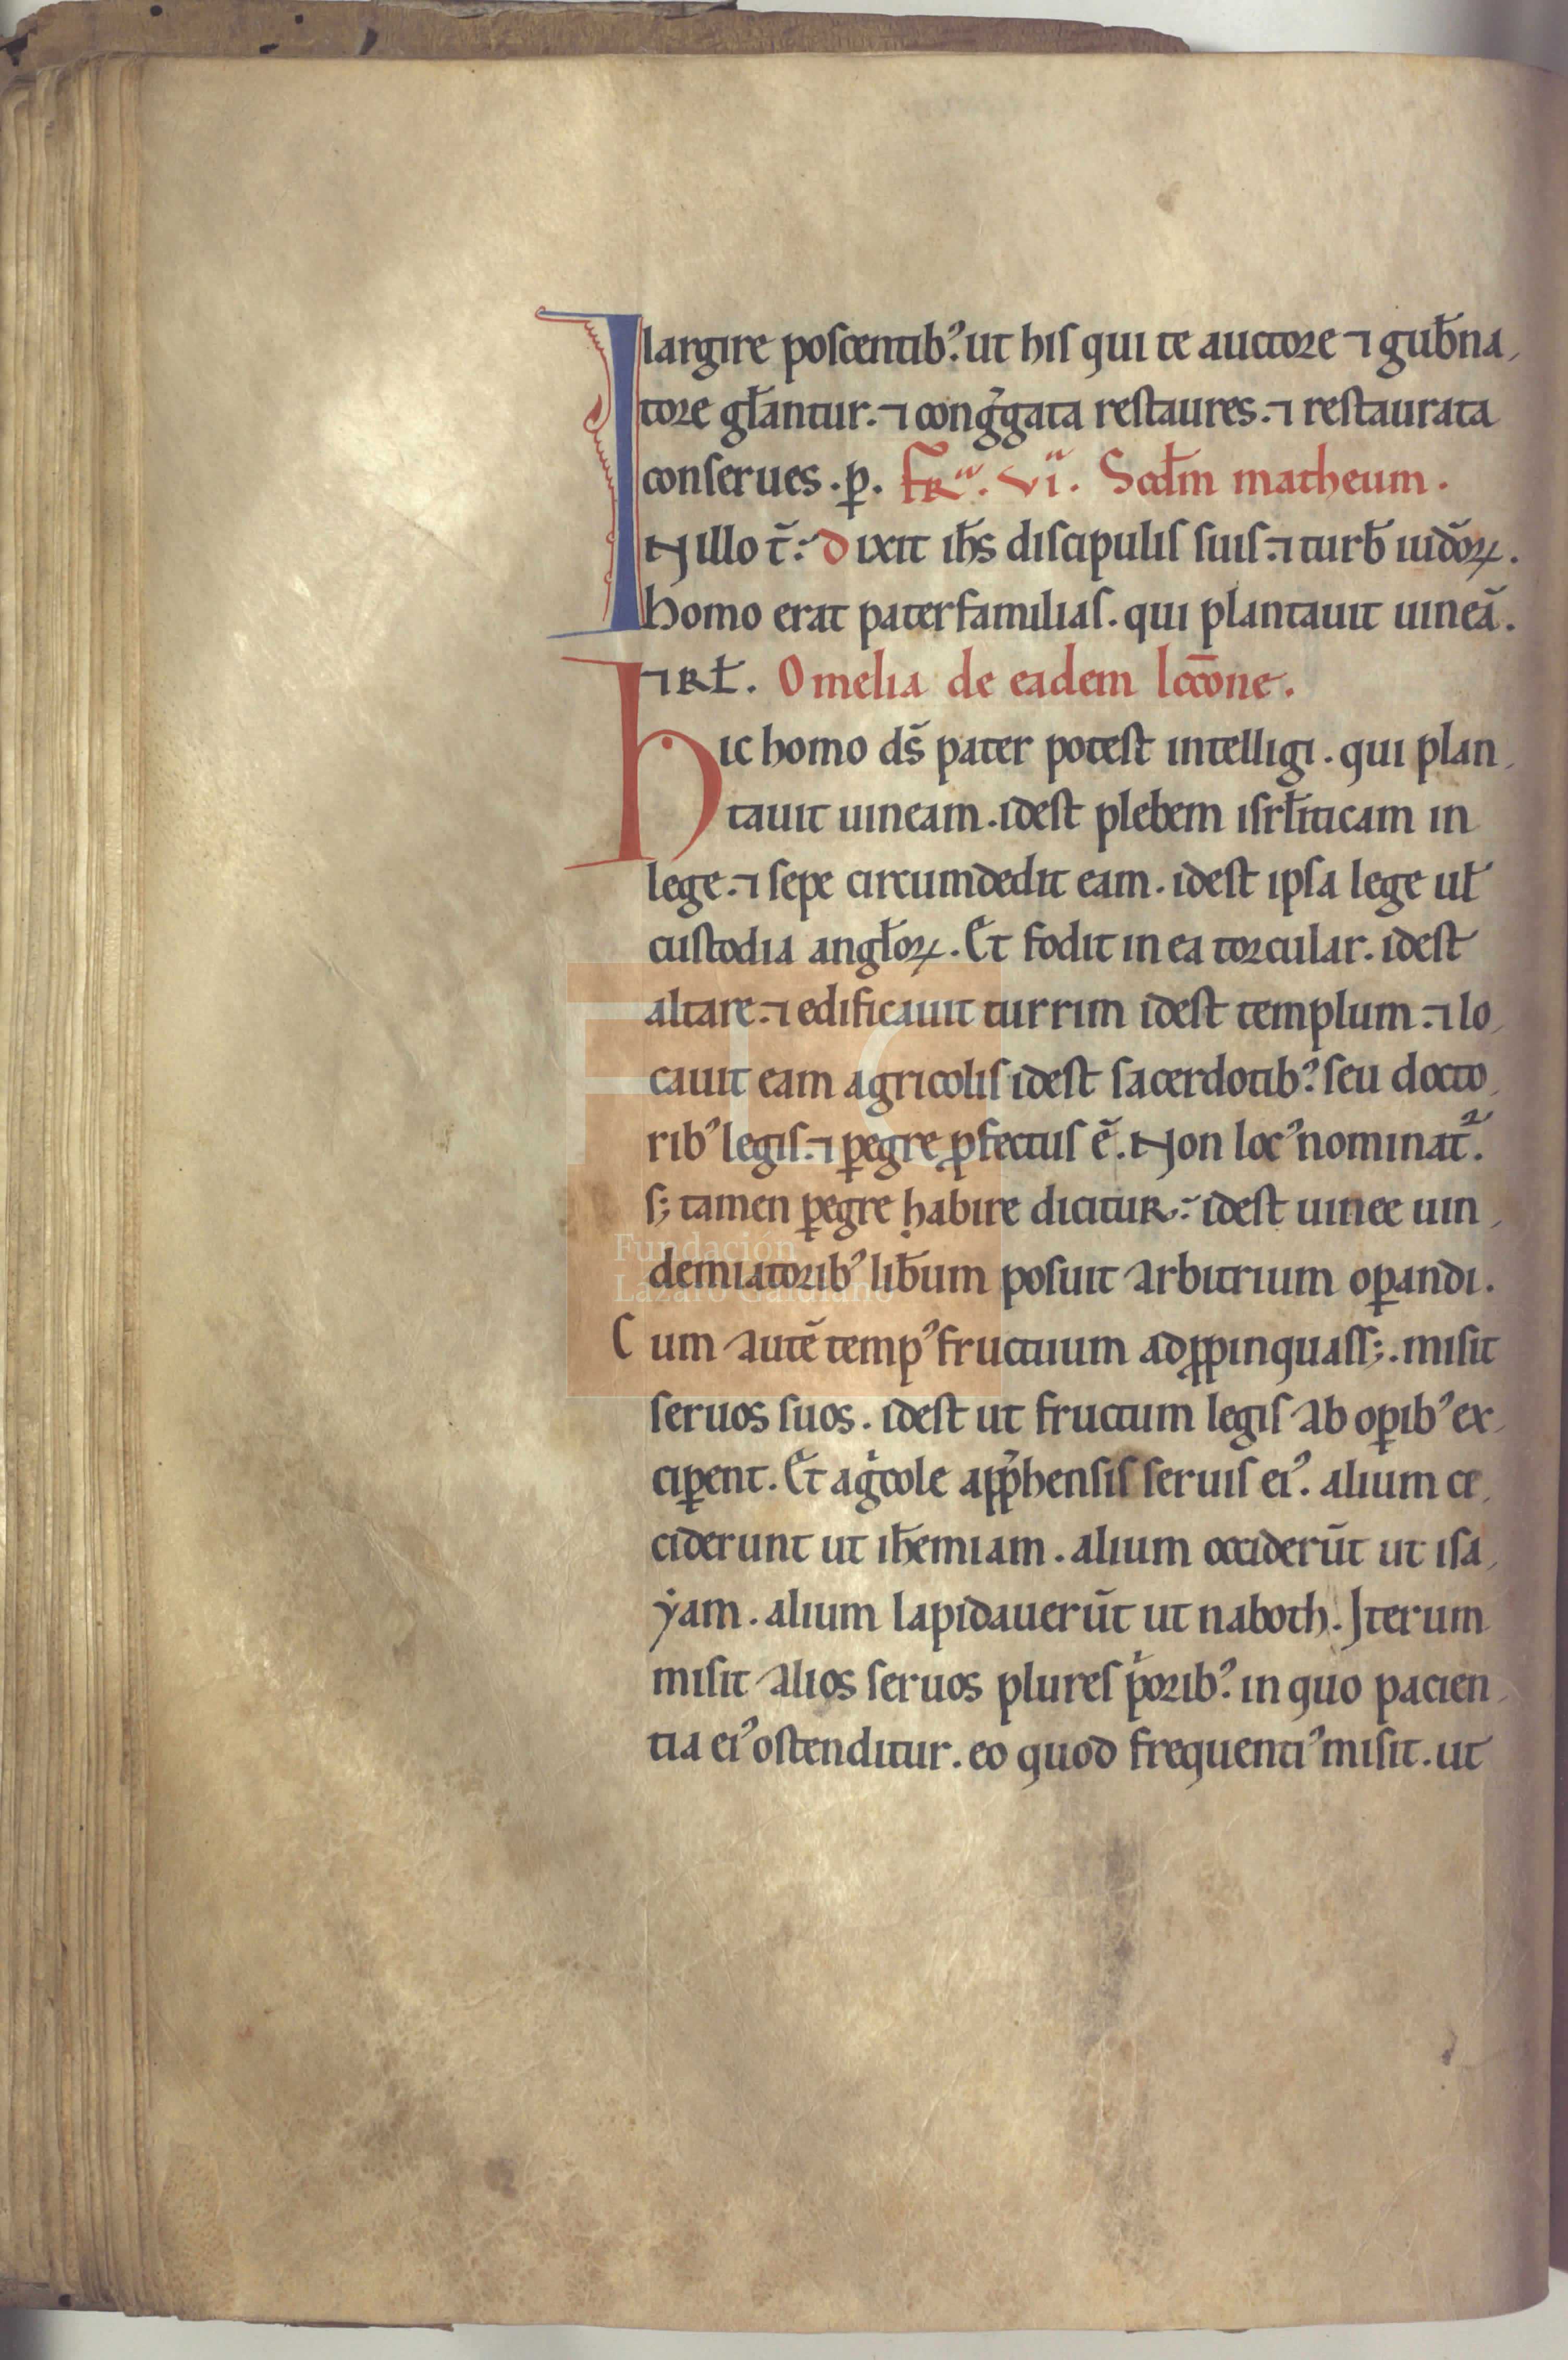 largire poscentibꝰ. ut his qui te auctore ⁊ gub̄na
tore gl̄antur. ⁊ congͣgata restaures. ⁊ restaurata
conserues. p̱. Fr̄ᵃ. vıᵃ. Scd̄m matheum.
IN illo t̄. dixit ih̄s discipulis suis. ⁊ turb̄ iudōꝝ.
homo erat paterfamilias. qui plantauit uineā.
⁊ rł. Omelia de eadem lcc̄one.
Hic homo ds̄ pater potest intelligi. qui plan
tauit uineam. idest plebem isrl̄iticam in
lege. ⁊ sepe circumdedit eam. idest ipsa lege ul̄
custodia angl̄oꝝ. Et fodit in ea torcular. idest
altare. ⁊ edificauit turrim idest templum. ⁊ lo
cauit eam agricolis idest sacerdotibꝰ. seu docto
ribꝰ legis. ⁊ ꝑegre ꝓfectus ē. Non locꝰ nominat᷑.
s; tamen ꝑegre habire dicitur. idest uinee uin
demiatoribꝰ lib̄um posuit arbitrium oꝑandi.
Cum autē tempꝰ fructuum adꝓpinquass;. misit
seruos suos. idest ut fructum legis ab oꝑibꝰ ex
ciꝑent. Et agͥcole app̄hensis seruis eiꝰ. alium ce
ciderunt ut ih̄emiam. alium occiderūt ut isa
ẏam. alium lapidauerūt ut naboth. Iterum
misit alios seruos plures pͥoribꝰ. in quo pacien
tia eiꝰ ostenditur. eo quod frequentiꝰ misit. ut
Fundación
Lázaro Galdiano